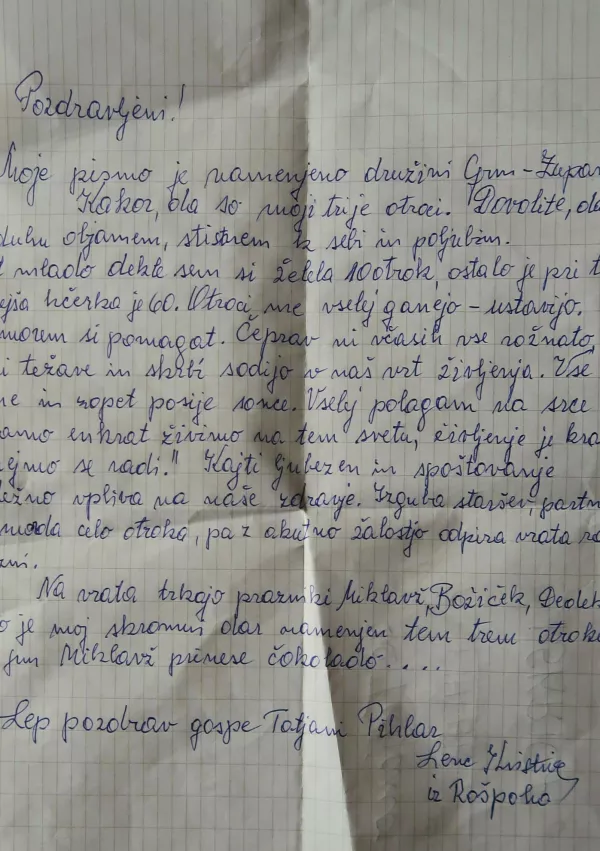 Pozdravljeni!
Moje pismo je namenjeno družini Grm-Župan
Kakor, da so moji trije otroci. "Dovolite, da
duhu objamem, stisnem k sebi in poljubim.
mlado dekle sem si želela 10 otrok, ostalo je pri t
ejša hčerka je 60. Otroci me vselej ganejo - ustavijo.
morem si pomagat. Čeprav ni včasih vse rožnato,
i težave in skrbi sodijo v naš vrt življenja. Vse
ne in zopet posije sonce. Vselej polagam na srce
amo enkrat živimo na tem svetu, življenje je kra
ejmo se radi." Kajti ljubezen in spoštovanje
ežno vpliva na naše zdravje. Izguba staršev, partn
morda celo otroka, pa z akutno žalostjo odpira vrata ra
zni.
Na vrata trkajo prazniki Miklavž, Božiček, Dedek
o je moj skromni dar namenjen tem trem otroko
jim Miklavž prinese čokolado....
Lep pozdrav gospe Tatjani Pihlar
iz Rošpoha